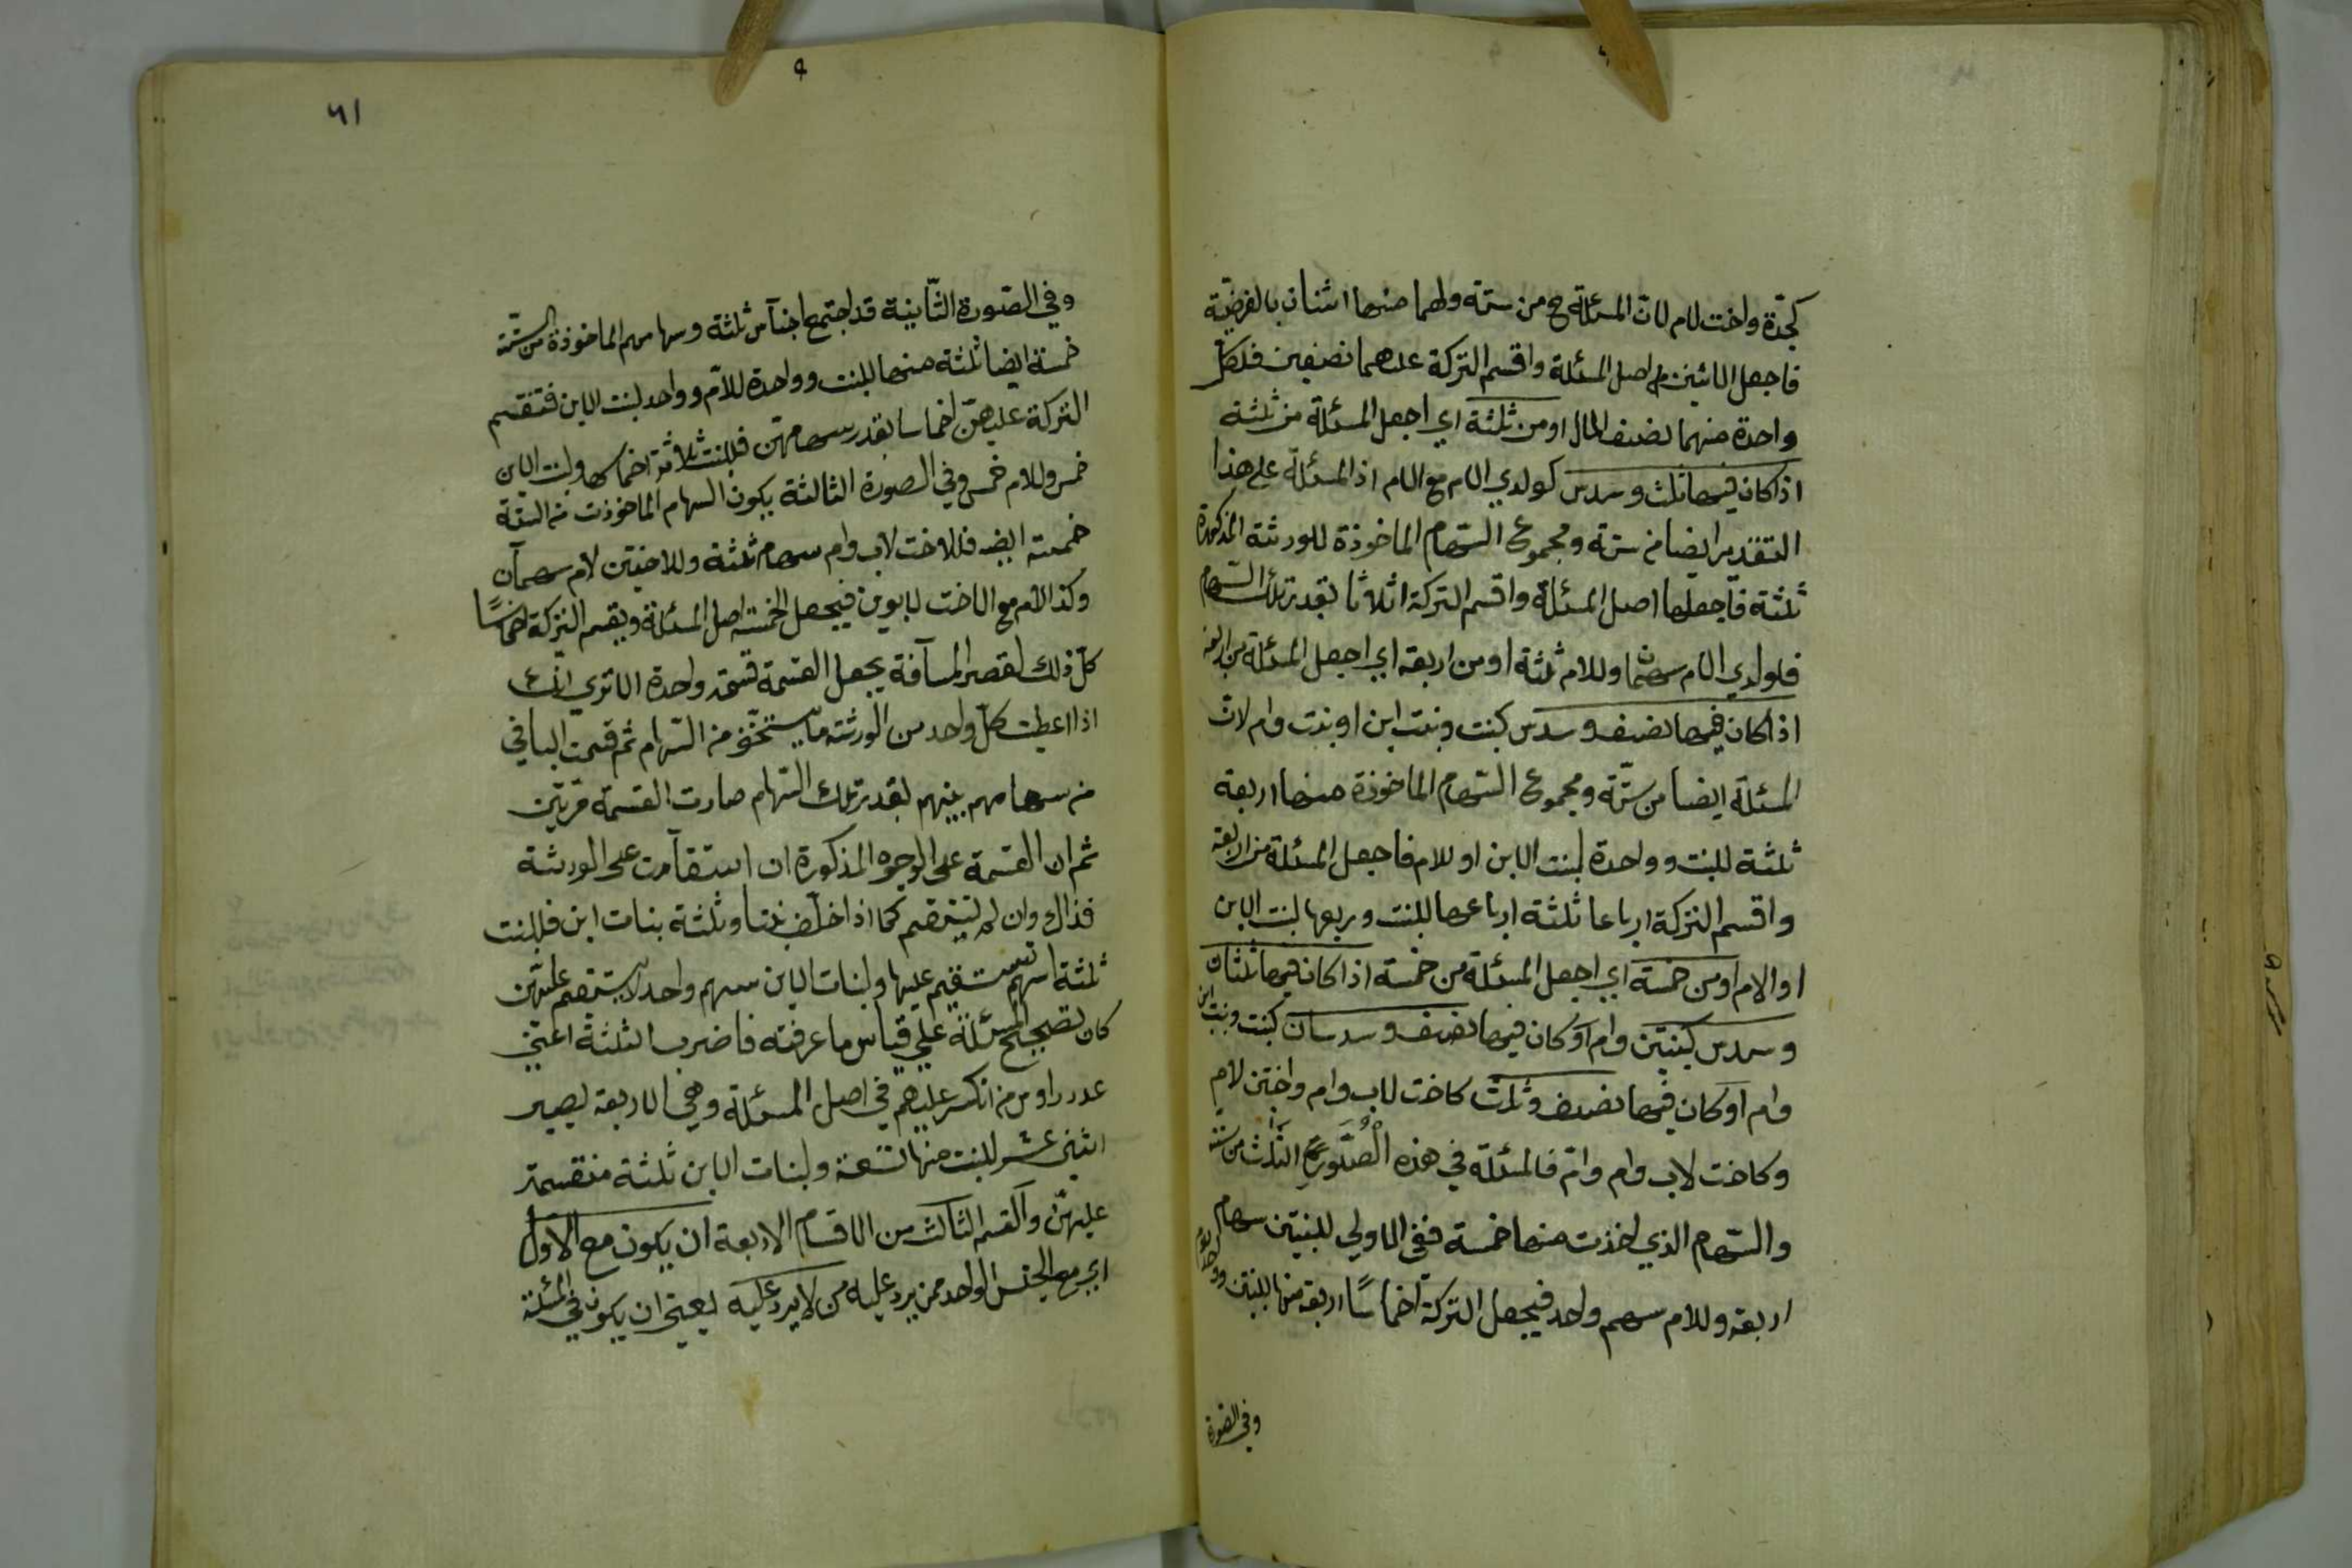 كجدة واخت لام لان المسئلة ح من ستة ولهما منها اثنان بالفرضية
فاجعل الاثنين اصل المسئلة واقسم التركة عليهما نصفين فلكل
واحدة منهما نصف المال او من ثلثة اي اجعل المسئلة من ثلثة
اذا كان فيها ثلث وسدس كولدي الام مع الام اذ المسئلة على هذا
التقدير ايضا من ستة ومجموع السهام الماخوذة للورثة المذكورة
ثلثة فاجعلها اصل المسئلة واقسم التركة اثلاثا بقدر تلك السهام
فلولدي الام سهمان وللام ثلثة او من اربعة اي اجعل المسئلة من اربعة
اذا كان فيها نصف وسدس كبنت وبنت ابن او بنت وام لان
المسئلة ايضا من ستة ومجموع السهام الماخوذة منها اربعة
ثلثة للبنت وواحدة لبنت الابن او للام فاجعل المسئلة من اربعة
واقسم التركة ارباعا ثلثة ارباعها للبنت وربعها لبنت الابن
او الام او من خمسة اي اجعل المسئلة من خمسة اذا كان فيها ثلثان
وسدس كبنتين وام او كان فيها نصف وسدسان كبنت وبنت ابن
وام او كان فيها نصف وثلث كاخت لاب وام واختين لام
وكاخت لاب وام وام فالمسئلة في هذه الصور الثلث من ستة
والسهام الذي اخذت منها خمسة ففي الاولي للبنتين سهام
اربعة وللام سهم واحد فيجعل التركة اخماسا اربعة منها للبنتين وواحد للام
وفي الصورة
٦١
وفي الصورة الثانية قد اجتمع اجناس ثلثة وسهامهم الماخوذة من الستة
خمسة ايضا ثلثة منها للبنت وواحدة للام وواحد لبنت الابن فتقسم
التركة عليهن اخماسا بقدر سهامهن فللبنت ثلاثة اخماسها ولبنت الابن
خمس وللام خمس وفي الصورة الثالثة يكون السهام الماخوذت من الستة
خمسة ايضا فللاخت لاب وام سهام ثلثة وللاختين لام سهمان
وكذا الام مع الاخت لابوين فيجعل الخمسة اصل المسئلة ويقسم التركة اخماسا
كل ذلك لقصر المسافة بجعل القسمة قسمة واحدة الا تري انك
اذا اعطيت كل واحد من الورثة ما يستحقه من السهام ثم قسمت الباقي
من سهامهم بينهم بقدر تلك السهام صارت القسمة مرتين
ثم ان القسمة على الوجوه المذكورة ان استقامت على الورثة
فذاك وان لم يستقم كما اذا خلف بنتا وثلثة بنات ابن فللبنت
ثلثة اسهم تستقيم عليها ولبنات الابن سهم واحد لا يستقيم عليهن
كان تصحيح المسئلة علي قياس ما عرفته فاضرب الثلثة اعني
عدد راوس من انكسر عليهم في اصل المسئلة وهي الاربعة ليصير
اثني عشر للبنت منها تسعة ولبنات الابن ثلثة منقسمة
عليهن والقسم الثالث من الاقسام الاربعة ان يكون مع الاول
اي مع الجنس الواحد ممن يرد عليه من لا يرد عليه يعني ان يكون في المسئلة